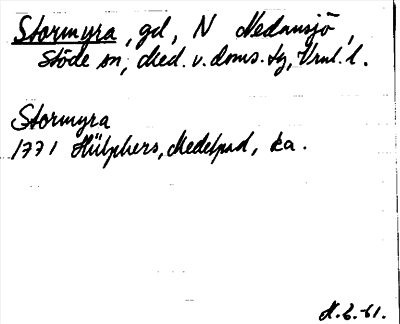 Stormyra, gd, N Nedansjö,
Stöde sn, Med. v. doms. tg, Vrnl. l.
Stormyra
1771 Hülphers, Medelpad, ka.
H. E. -61.